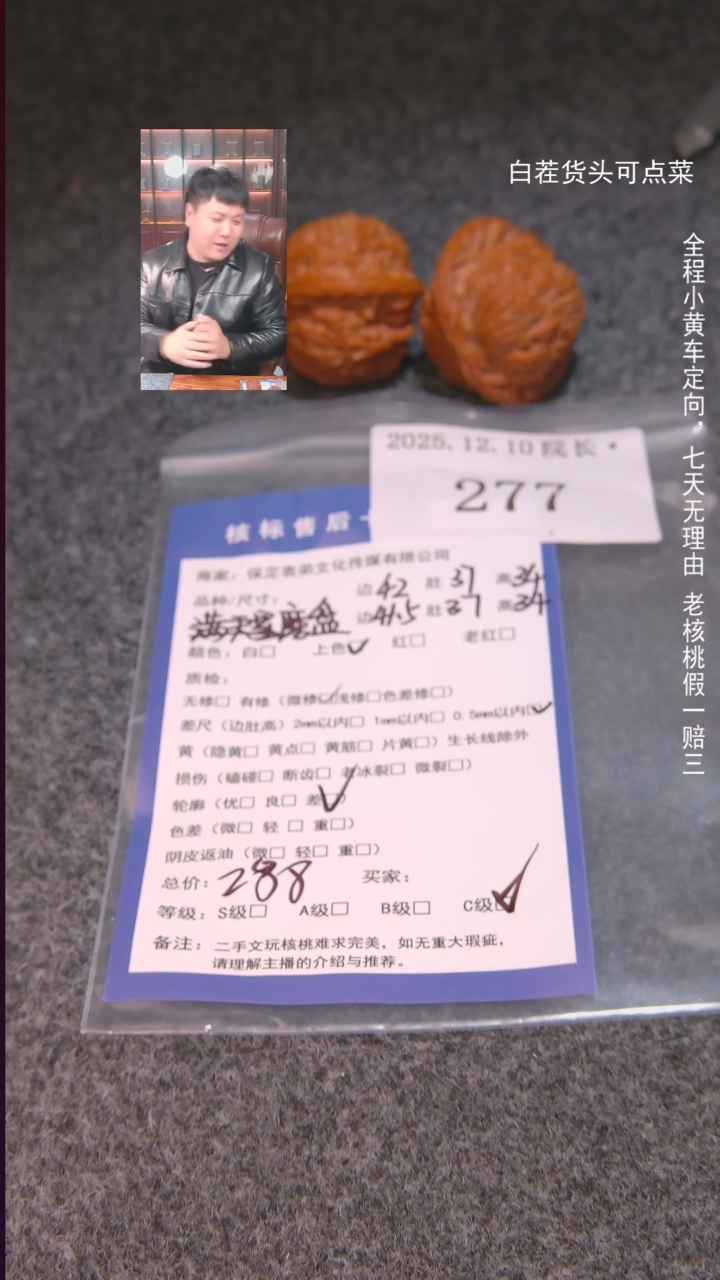 白茬货头可点菜
全程小黄车定向，七天无理由 老核桃假一赔三
2025.12.10 院长·
277
核标售后卡
商家：保定表弟文化传媒有限公司
品种/尺寸： 边42 肚37 高34
满天星磨盘 边41.5 肚37 高34
颜色：白□ 上色☑ 红□ 老红□
质检：
无修□ 有修（微修☑浅修□色差修□）
差尺（边肚高）2mm以内□ 1mm以内□ 0.5mm以内☑
黄（隐黄□ 黄点□ 黄筋□ 片黄□）生长线除外
损伤（磕碰□ 断齿□ 老冰裂□ 微裂□）
轮廓（优□ 良□ 差☑）
色差（微□ 轻□ 重□）
阴皮返油（微□ 轻□ 重□）
总价：288 买家：
等级：S级□ A级□ B级□ C级☑
备注：二手文玩核桃难求完美，如无重大瑕疵，
请理解主播的介绍与推荐。